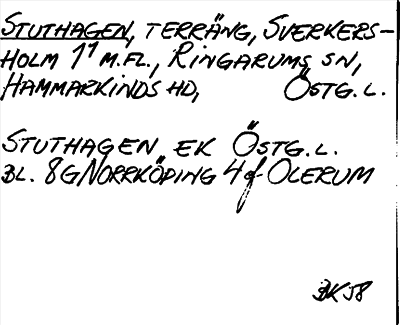 STUTHAGEN, TERRÄNG, SVERKERS-
HOLM 1¹ M.FL., RINGARUMS SN,
HAMMARKINDS HD, ÖSTG. L.
STUTHAGEN EK ÖSTG. L.
BL. 8G NORRKÖPING 4f OLERUM